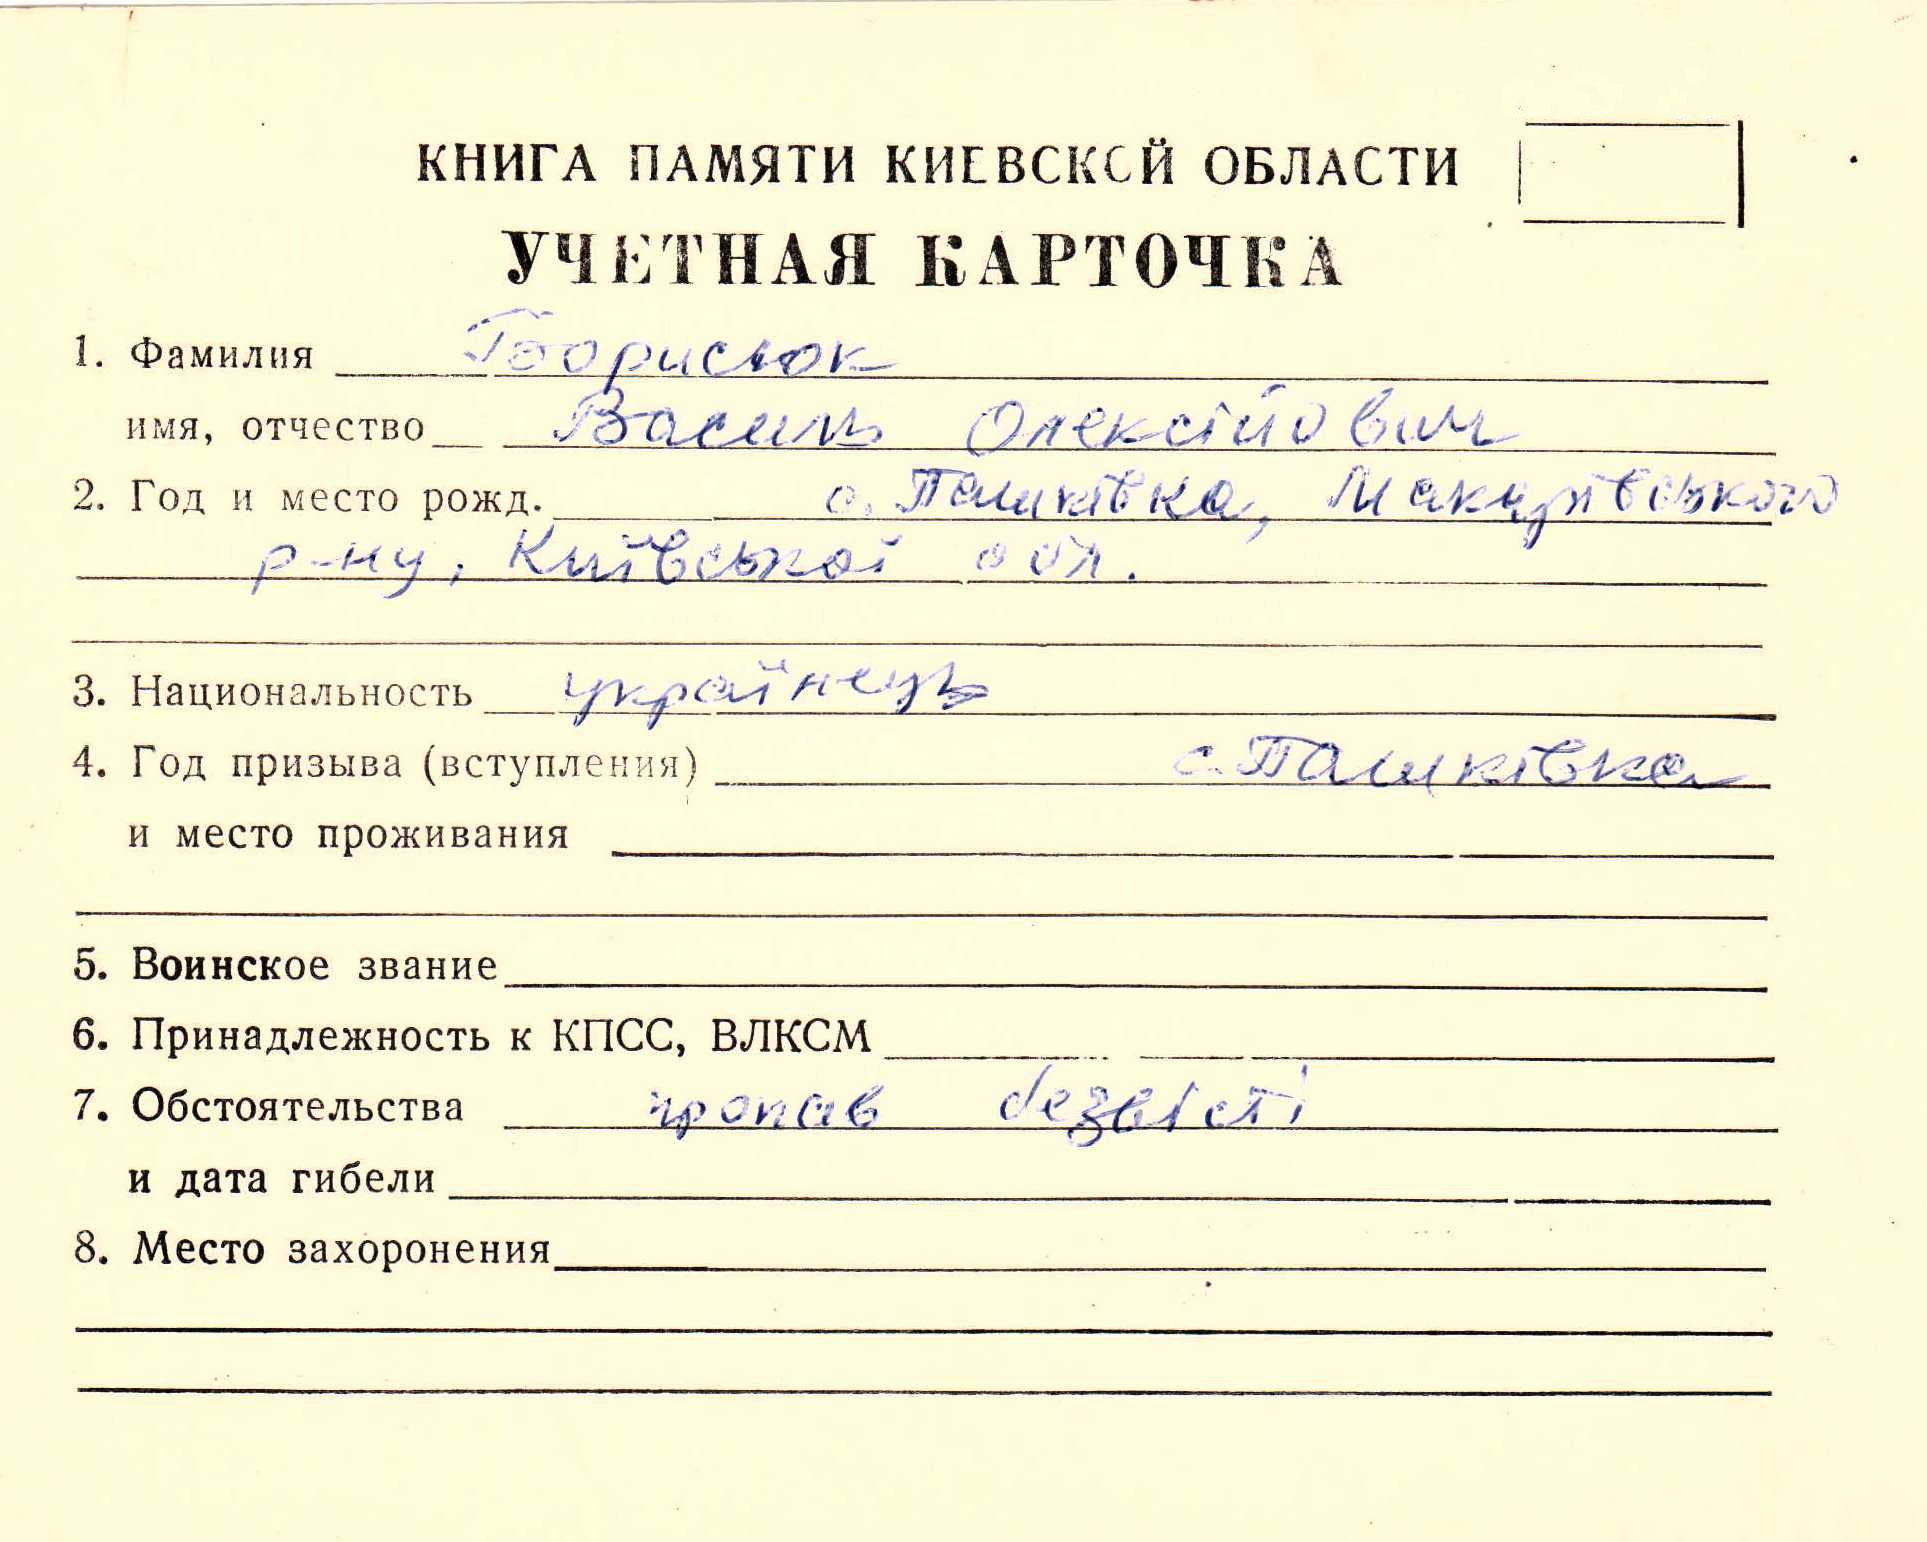 КНИГА ПАМЯТИ КИЕВСКОЙ ОБЛАСТИ
УЧЕТНАЯ КАРТОЧКА
1. Фамилия Борисюк
имя, отчество Василь Олексійович
2. Год и место рожд. с. Пашківка, Макарівського
р-ну, Київської обл.
3. Национальность українець
4. Год призыва (вступления) с. Пашківка
и место проживания
5. Воинское звание
6. Принадлежность к КПСС, ВЛКСМ
7. Обстоятельства пропав безвісті
и дата гибели
8. Место захоронения